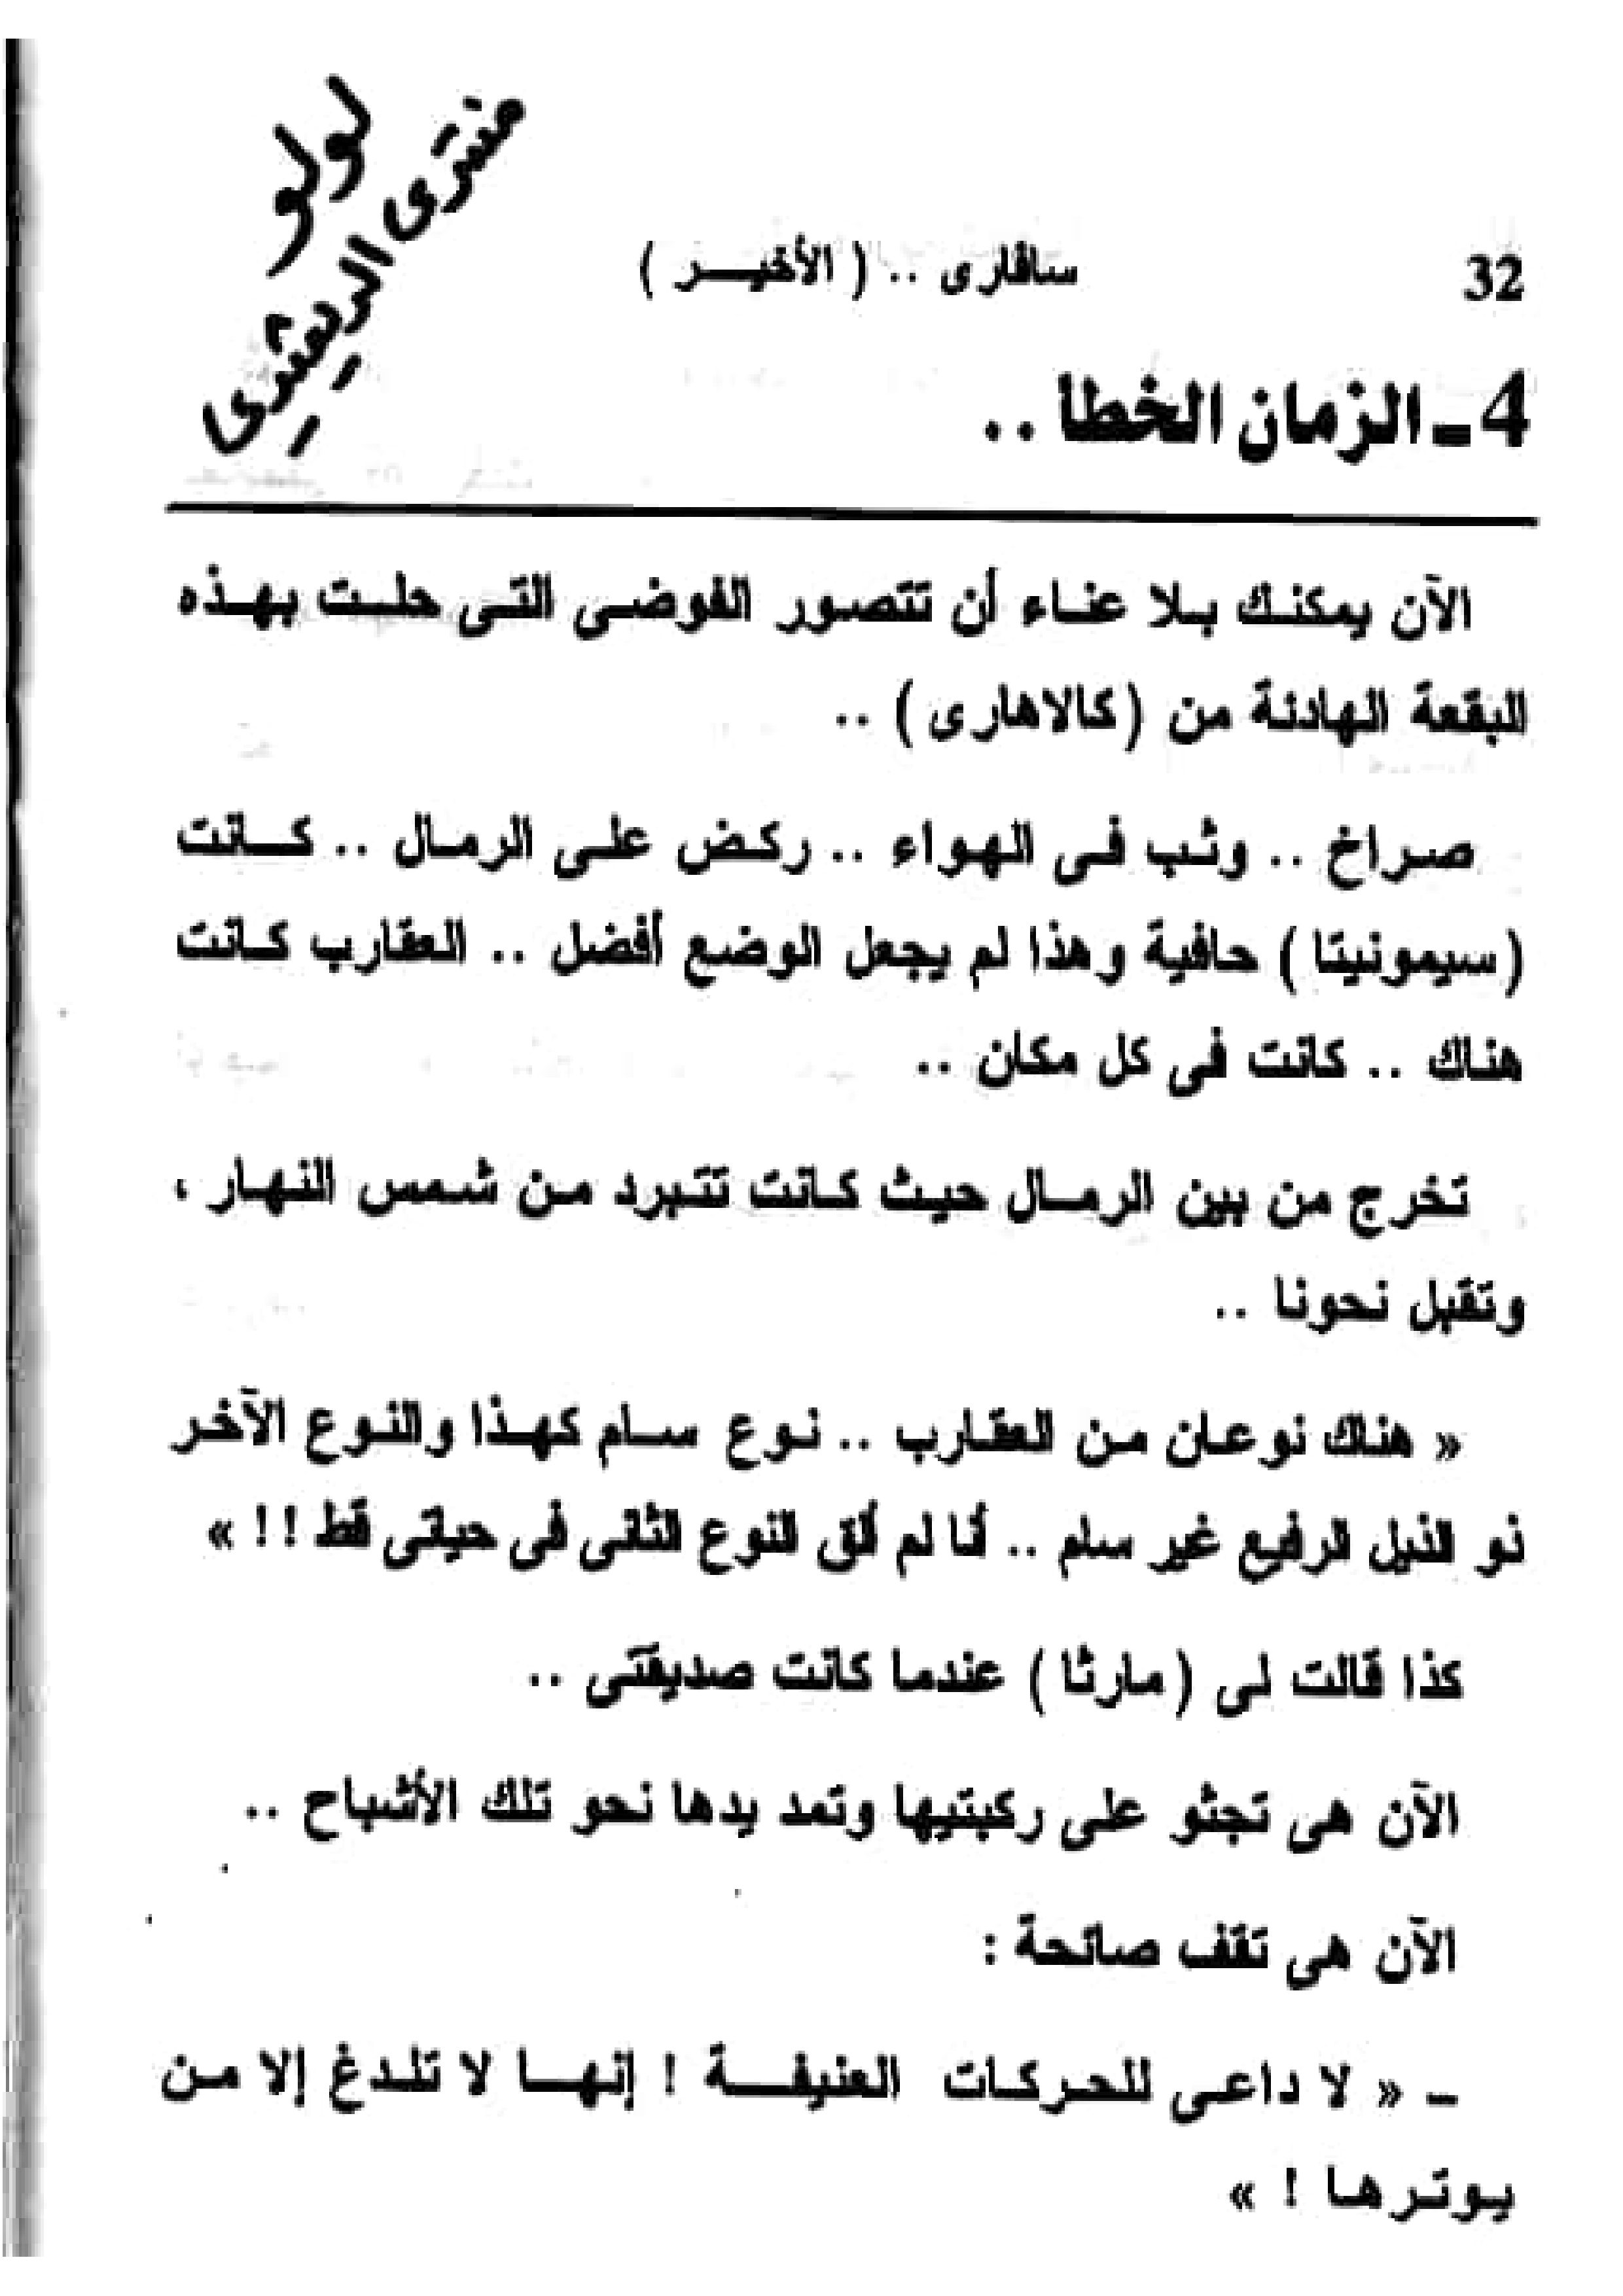 لولو
منتدى الريشِرِى
32
سافارى .. ( الأخيـــر )
4 ـ الزمان الخطأ ..
الآن يمكنك بلا عناء أن تتصور الفوضى التى حلت بهذه
البقعة الهادئة من ( كالاهارى ) ..
صراخ .. وثب فى الهواء .. ركض على الرمال .. كانت
( سيمونيتا ) حافية وهذا لم يجعل الوضع أفضل .. العقارب كانت
هناك .. كانت فى كل مكان ..
تخرج من بين الرمال حيث كانت تتبرد من شمس النهار ،
وتقبل نحونا ..
« هناك نوعان من العقارب .. نوع سام كهذا والنوع الآخر
ذو الذيل الرفيع غير سام .. أنا لم ألق النوع الثانى فى حياتى قط ! ! »
كذا قالت لى ( مارثا ) عندما كانت صديقتى ..
الآن هى تجثو على ركبتيها وتمد يدها نحو تلك الأشباح ..
الآن هى تقف صائحة :
ـ « لا داعى للحركات العنيفة ! إنها لا تلدغ إلا من
يوترها ! »